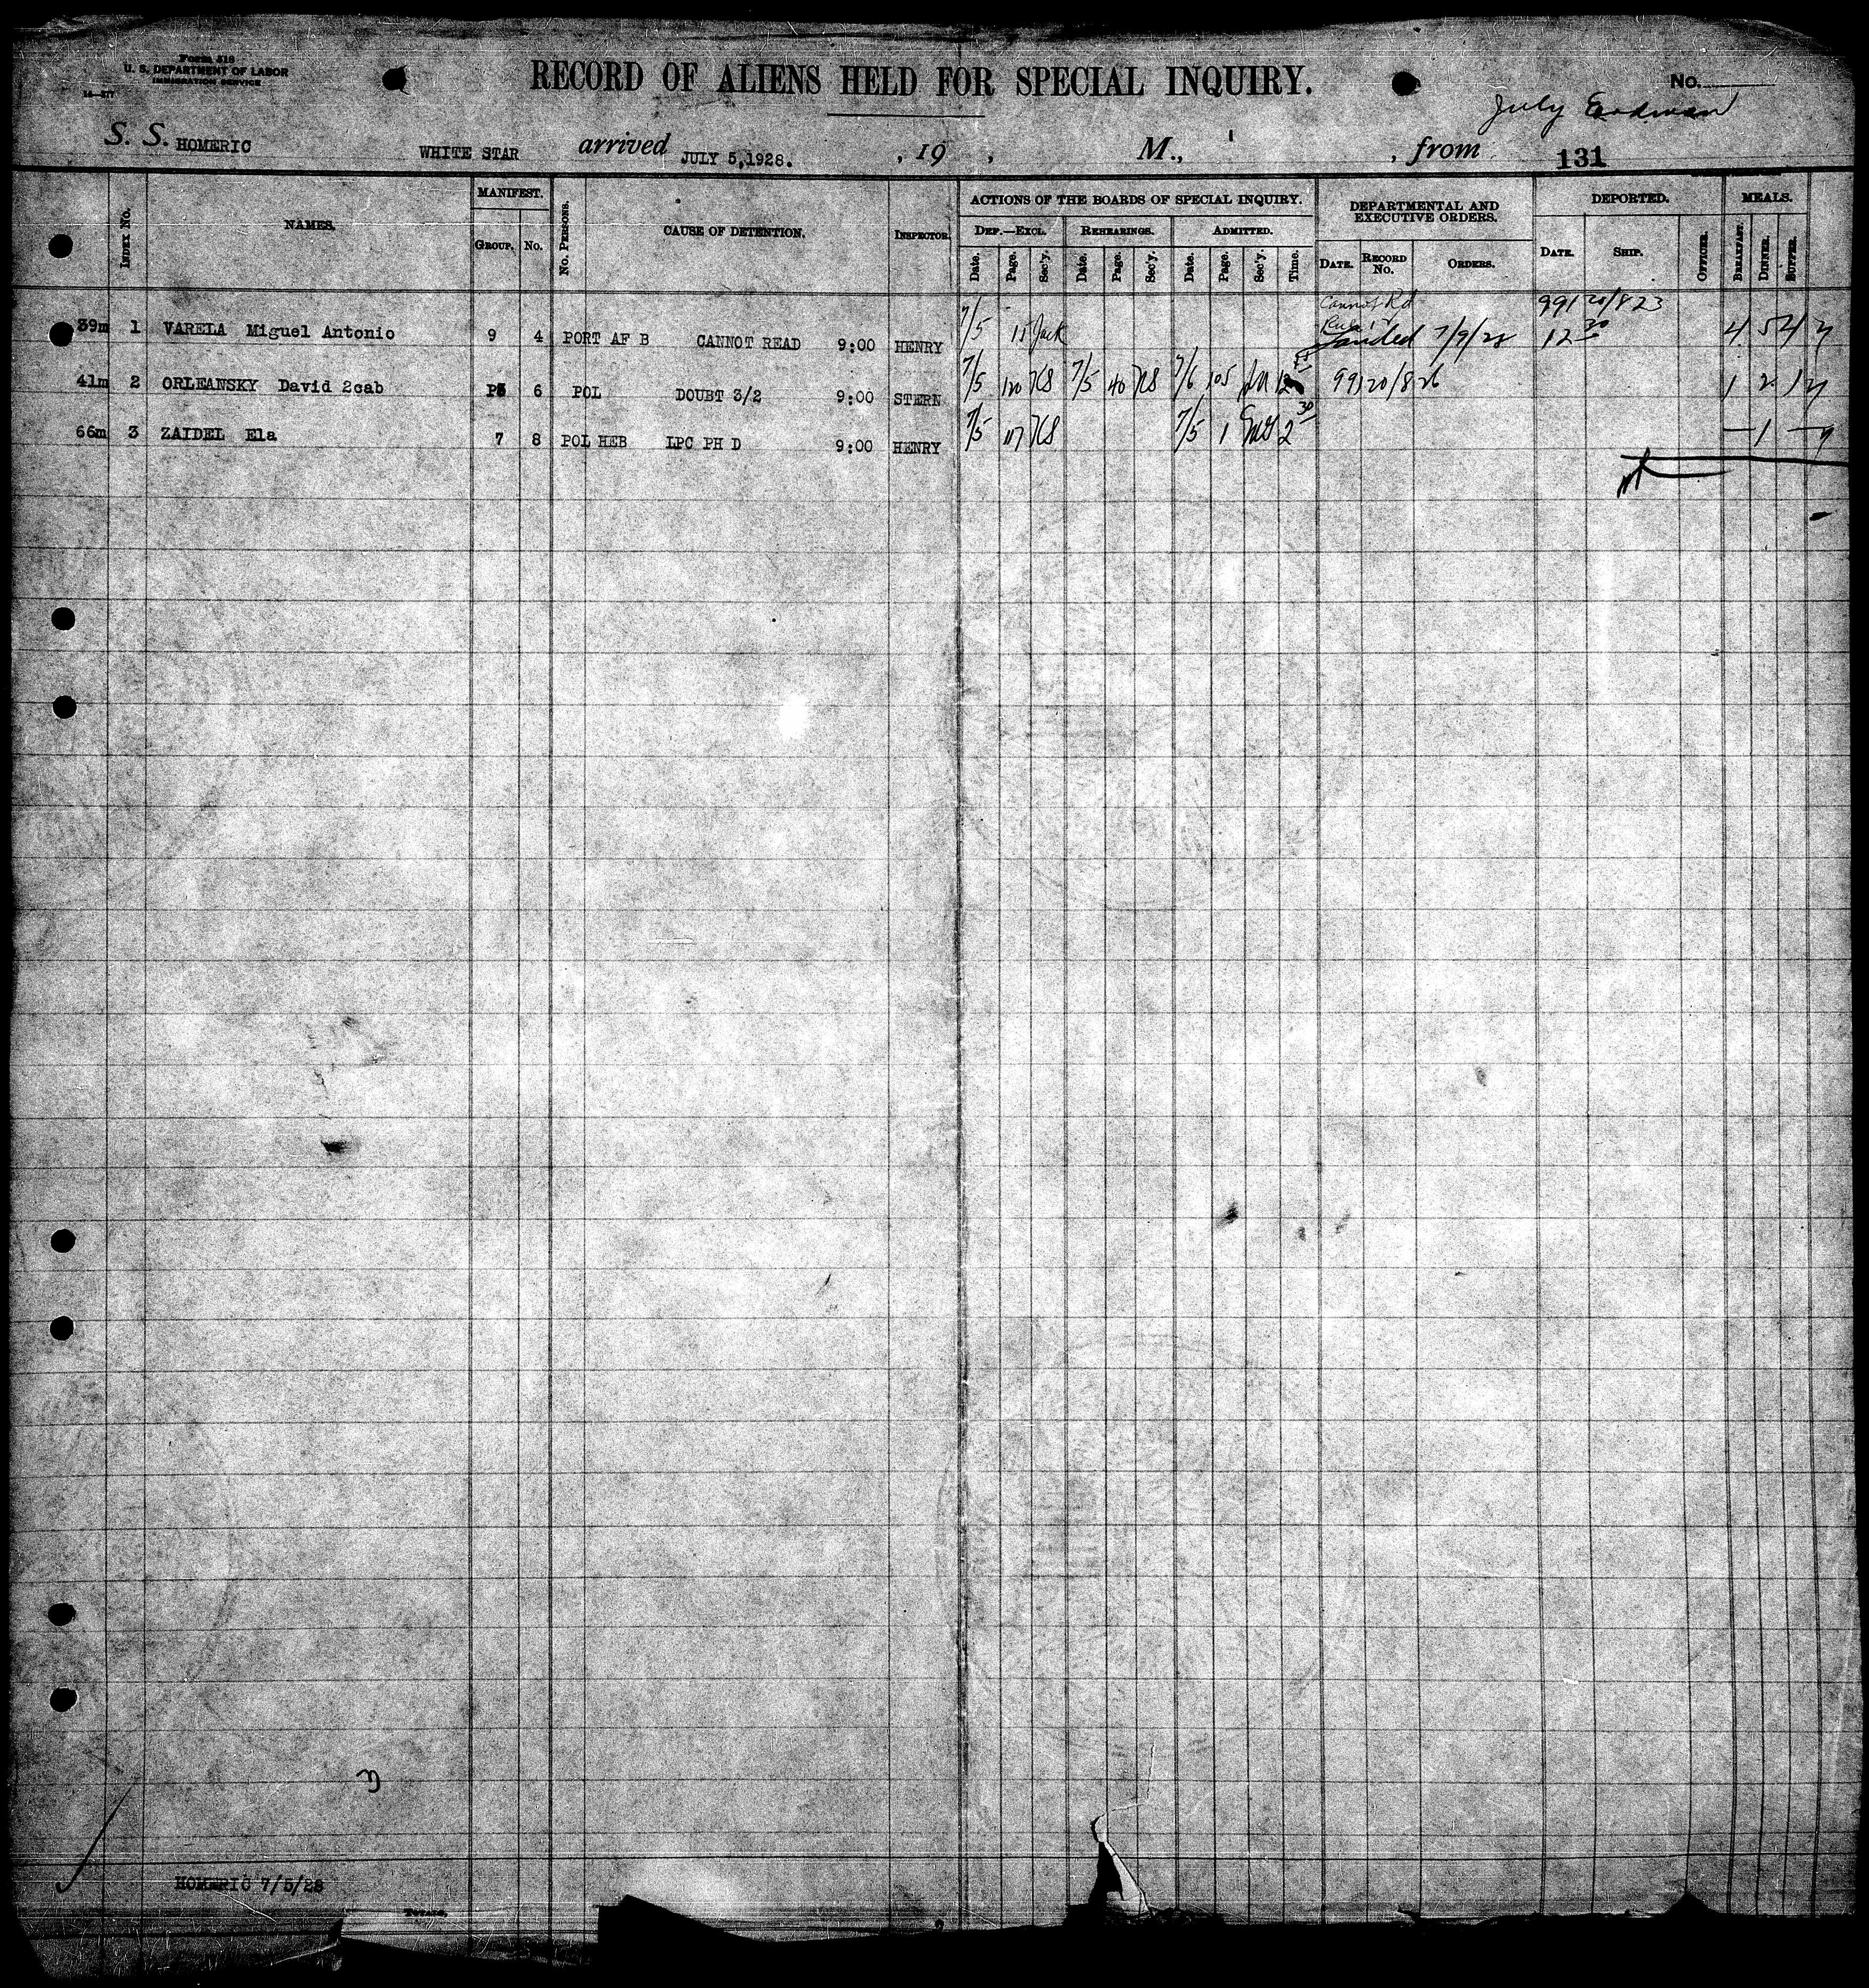 Form 518
U. S. DEPARTMENT OF LABOR
IMMIGRATION SERVICE
14—277
RECORD OF ALIENS HELD FOR SPECIAL INQUIRY.
No.
July
S. S. HOMERIC WHITE STAR arrived JULY 5,1928. , 19 , M., , from 131
INDEX No. NAMES. MANIFEST. GROUP. No. No. PERSONS. CAUSE OF DETENTION. INSPECTOR. ACTIONS OF THE BOARDS OF SPECIAL INQUIRY. DEPARTMENTAL AND EXECUTIVE ORDERS. DEPORTED. MEALS.
DEF.—EXCL. REHEARINGS. ADMITTED.
Date. Page. Sec'y. Date. Page. Sec'y. Date. Page. Sec'y. Time. DATE. RECORD No. ORDERS. DATE. SHIP. OFFICER. BREAKFAST. DINNER. SUPPER.
Cannot Rd 99120/823
39m 1 VARELA Miguel Antonio 9 4 PORT AF B CANNOT READ 9:00 HENRY 7/5 15 Jack Landed 7/9/28 12 30 4 5 4 y
41m 2 ORLEANSKY David 2cab 6 POL DOUBT 3/2 9:00 STERN 7/5 120 KS 7/5 40 KS 7/6 105 12 99120/826 1 2 1 y
66m 3 ZAIDEL Ela 7 8 POL HEB LPC PH D 9:00 HENRY 7/5 117 KS 7/5 1 2 30 — 1 — y
HOMERIC 7/5/28
TOTALS.